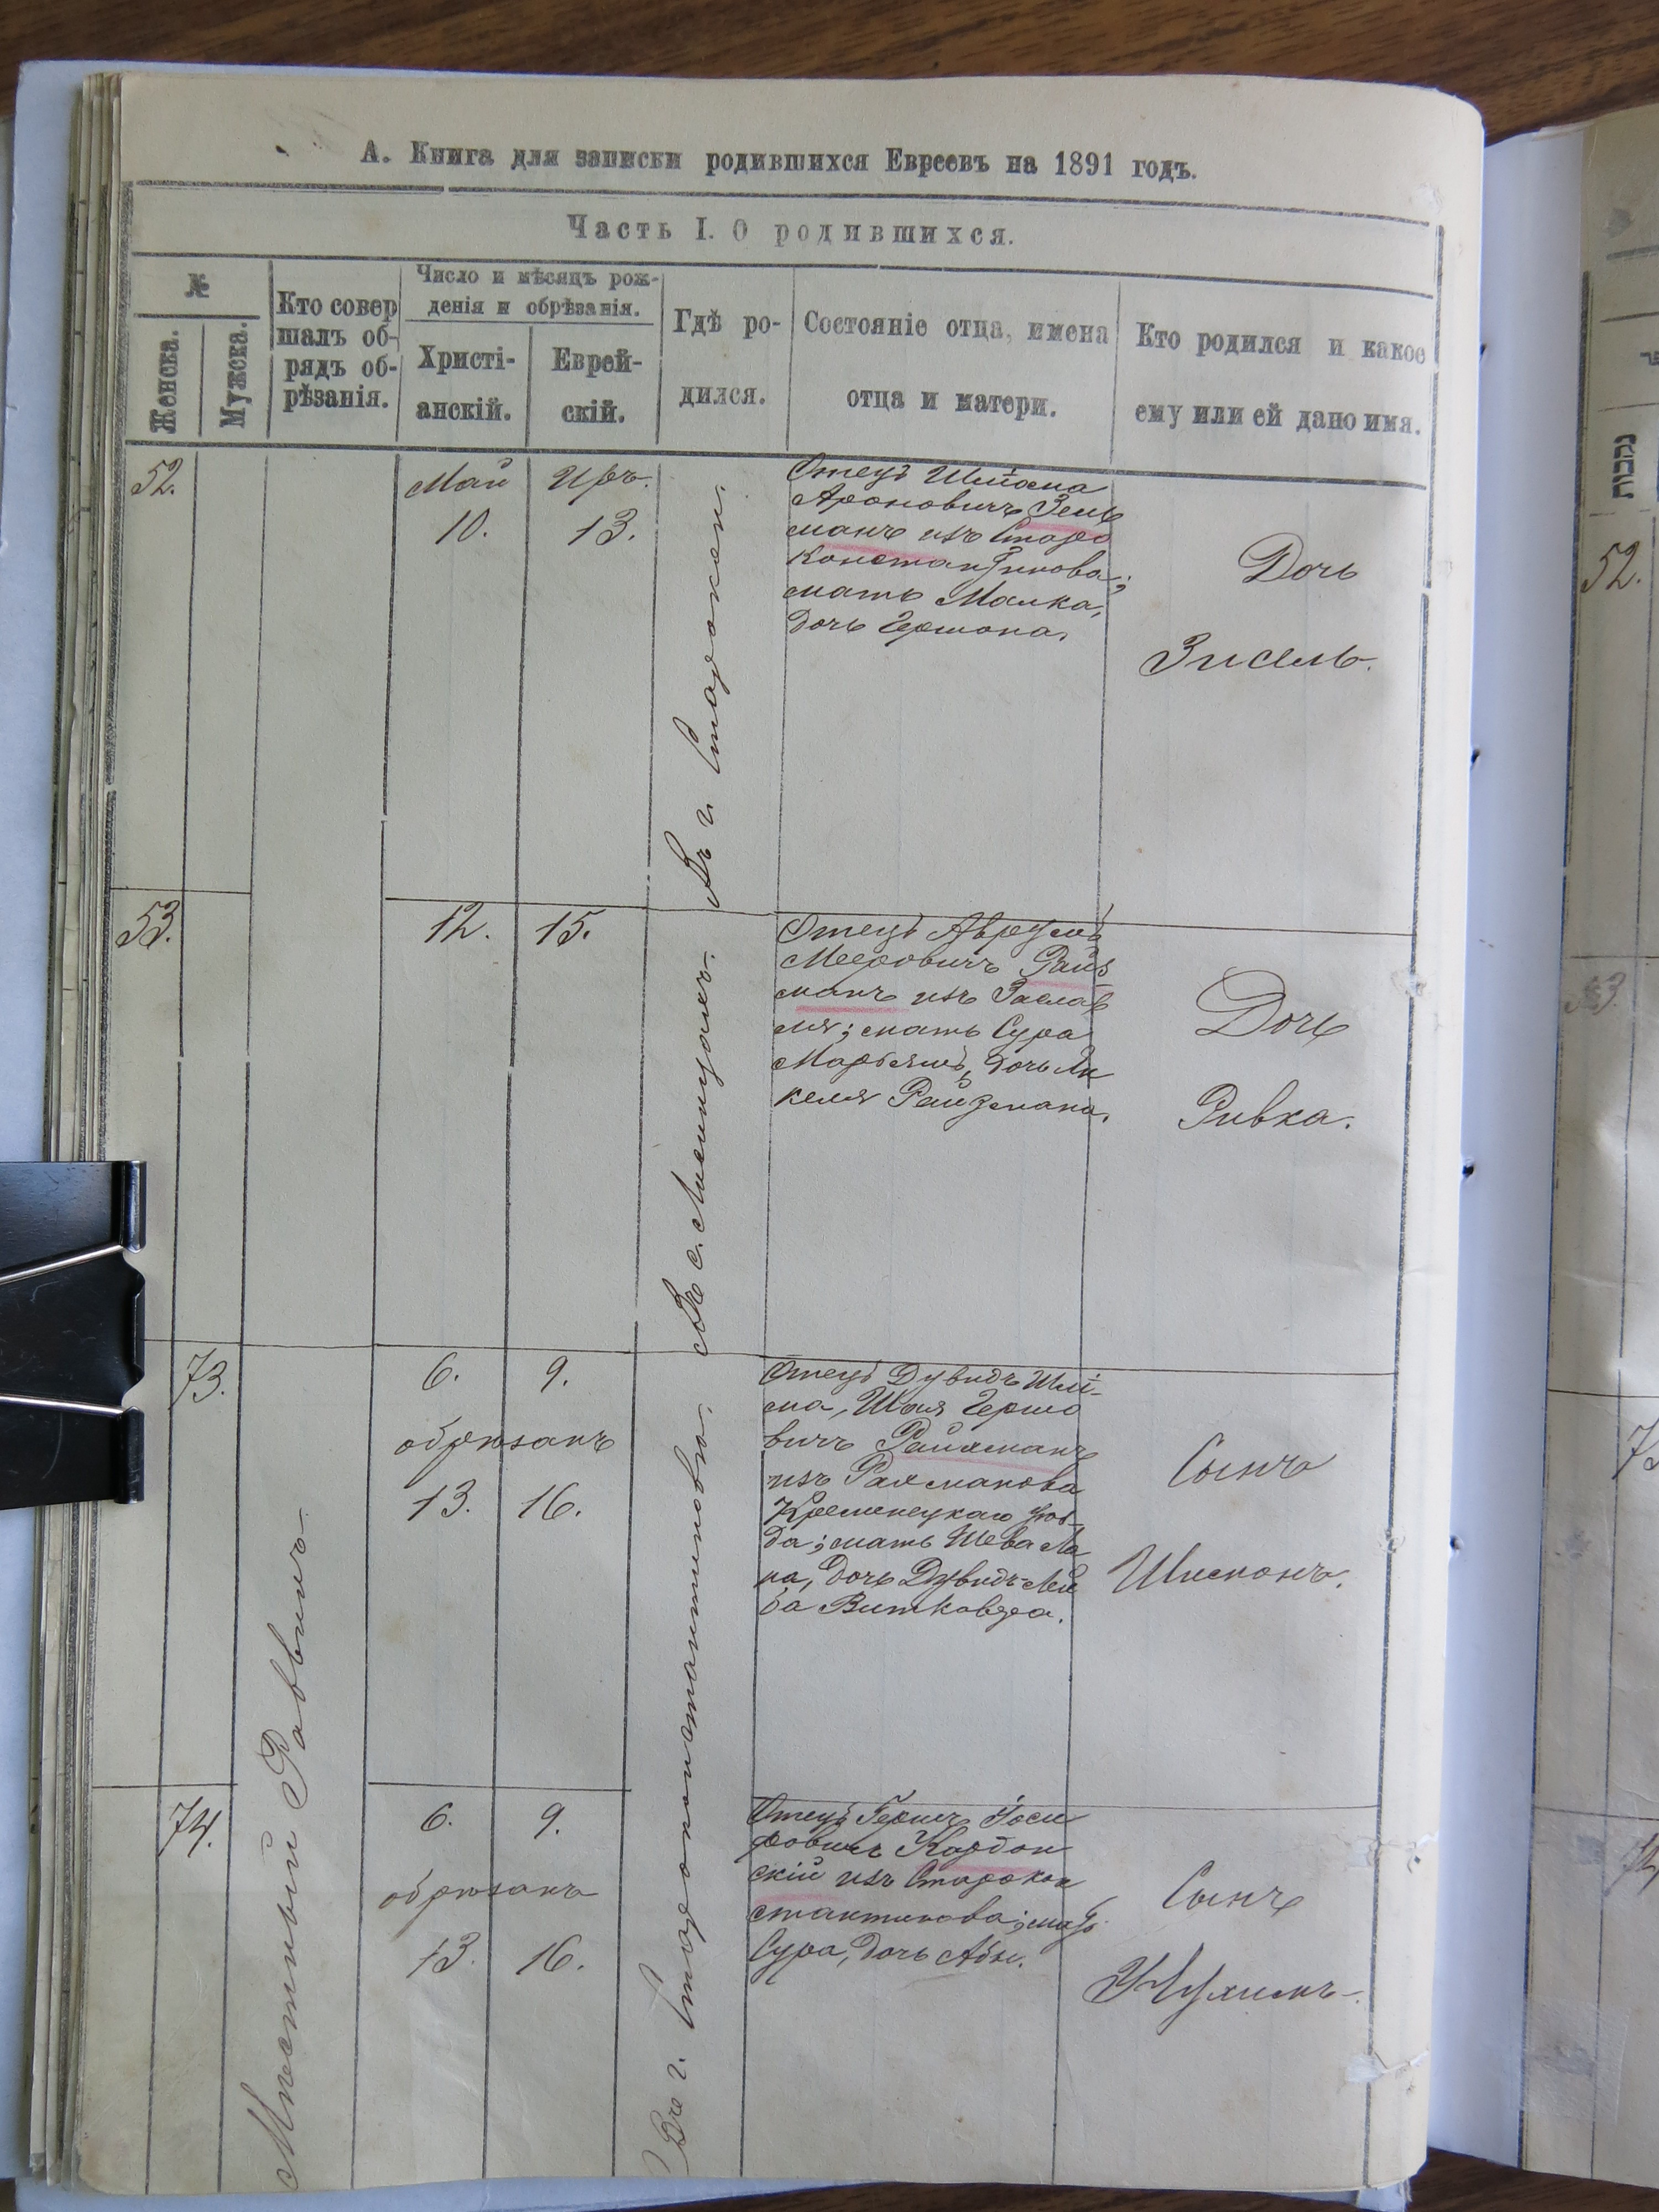 А. Книга для записки родившихся Евреевъ на 1891 годъ.
Часть I. О родившихся.
№
Женска.
Мужска.
Кто совер
шалъ об-
рядъ об-
рѣзанія.
Число и мѣсяцъ рож-
денія и обрѣзанія.
Христі-
анскій.
Еврей-
скій.
Гдѣ ро-
дился.
Состояніе отца, имена
отца и матери.
Кто родился и какое
ему или ей дано имя.
52.
Май
10.
Иръ.
13.
Въ г. Старокон.
Отецъ Шлiома
Ароновичъ Зель
манъ изъ Старо
Константинова;
мать Малка,
дочь Гершона.
Дочь
Зисель.
53.
12.
15.
Въ с.
Отецъ Аврумъ
Мееровичъ Райз
манъ изъ Заслав
ля; мать Сура
Марьямъ, дочь Ан
келя Райзмана.
Дочь
Ривка.
73.
Мѣстный Раввинъ
6.
9.
обрѣзанъ
13.
16.
Въ г. Староконстантиновѣ.
Отецъ Дувидъ Шлi-
ма, Шая Гершо
вичъ Райхманъ
изъ Рахманова
Кременецкаго уѣз-
да; мать Шева Ла
на, дочь Дувидъ-Лей
ба Витковера.
Сынъ
Шлiомонъ.
74.
6.
9.
обрѣзанъ
13.
16.
Отецъ Гершъ Iоси
фовичъ Кордон
скій изъ Старокон
стантинова; мать
Сура, дочь Абы.
Сынъ
Нухимъ.
נקבות
52.
53.
73
74